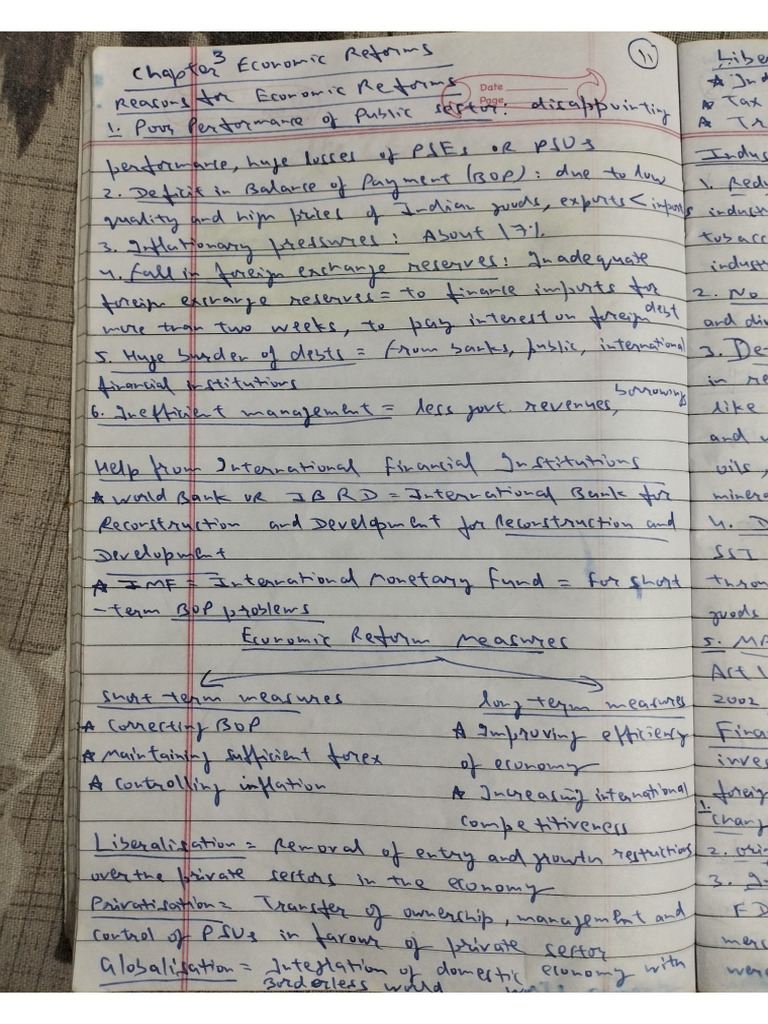 11
Chapter 3 Economic Reforms
Reasons for Economic Reforms
Date
Page
1. Poor Performance of Public sector: disappointing
performance, huge losses of PSEs OR PSUs
2. Deficit in Balance of Payment (BOP): due to low
quality and high prices of Indian goods, exports < imports
3. Inflationary pressures: About 17%
4. Fall in foreign exchange reserves: Inadequate
foreign exchange reserves = to finance imports for
more than two weeks, to pay interest on foreign debt
5. Huge burden of debts = from banks, public, international
financial institutions
6. Inefficient management = less govt. revenues, borrowings
Help from International Financial Institutions
★ World Bank OR IBRD = International Bank for
Reconstruction and Development for Reconstruction and
Development
★ IMF = International Monetary Fund = For short
-term BOP problems
Economic Reform Measures
Short term measures
★ Correcting BOP
★ Maintaining sufficient forex
★ Controlling inflation
long term measures
★ Improving efficiency
of economy
★ Increasing international
competitiveness
Liberalisation = Removal of entry and growth restrictions
over the private sectors in the economy
Privatisation = Transfer of ownership, management and
control of PSUs in favour of private sector
Globalisation = Integration of domestic economy with
Borderless world
Libe
★ Ind
★ Tax
★ Tr
Indus
1. Redu
indust
tobacc
indust
2. No
and di
3. De-
in re
like
and
oils,
minera
4. D
SSI
throu
goods
5. MR
Act
2002
Fina
inves
foreig
1. Chang
2. ori
3. I
FD
merc
were